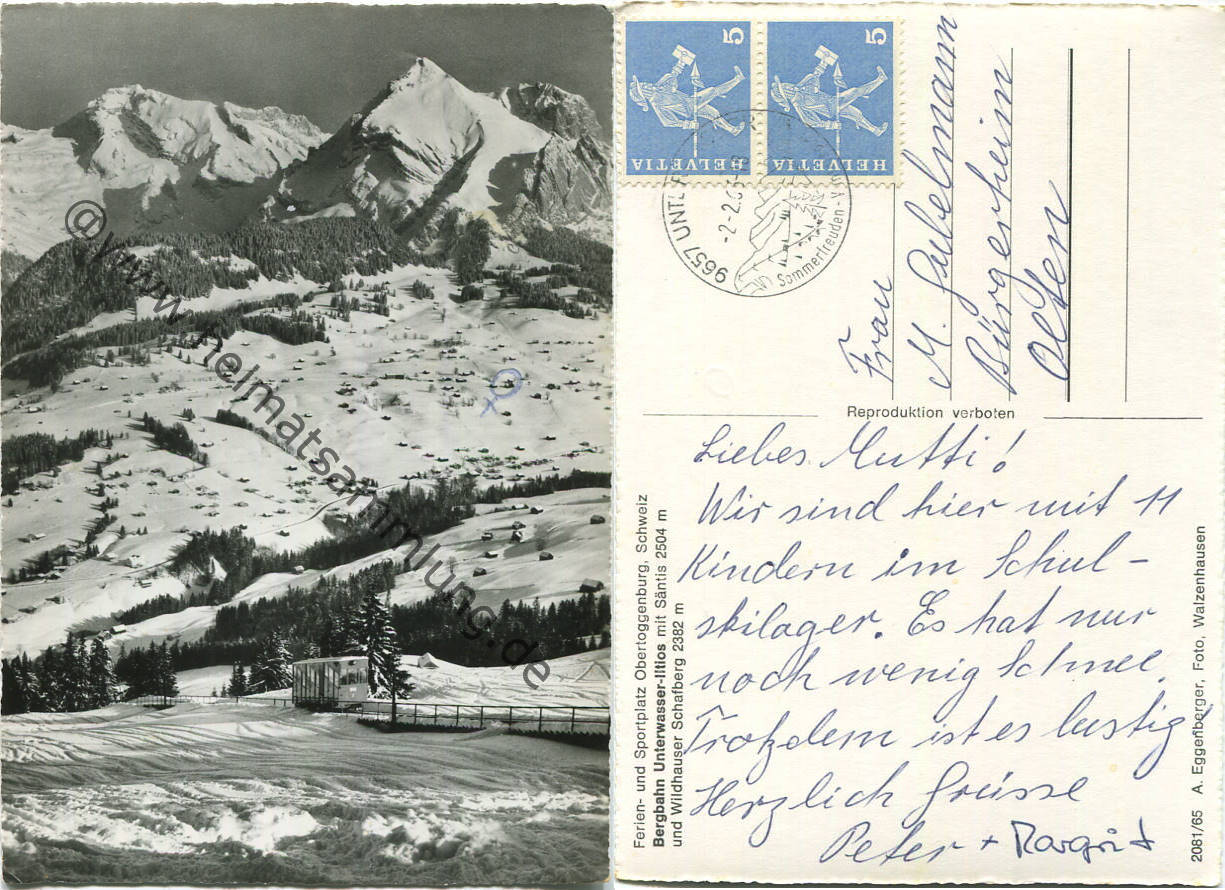 @www.heimatsammlung.de
5 5
HELVETIA HELVETIA
9657 UNTE
-2-2.6
Sommerfreuden
Frau
M. Gubelmann
Bürgerheim
Olten
Reproduktion verboten
Liebes Mutti!
Wir sind hier mit 11
Kindern im Schul-
skilager. Es hat nur
noch wenig Schnee.
Trotzdem ist es lustig
Herzlich Grüsse
Peter + Margrit
Ferien- und Sportplatz Obertoggenburg, Schweiz
Bergbahn Unterwasser-Iltios mit Säntis 2504 m
und Wildhauser Schafberg 2382 m
2081/65 A. Eggenberger, Foto, Walzenhausen